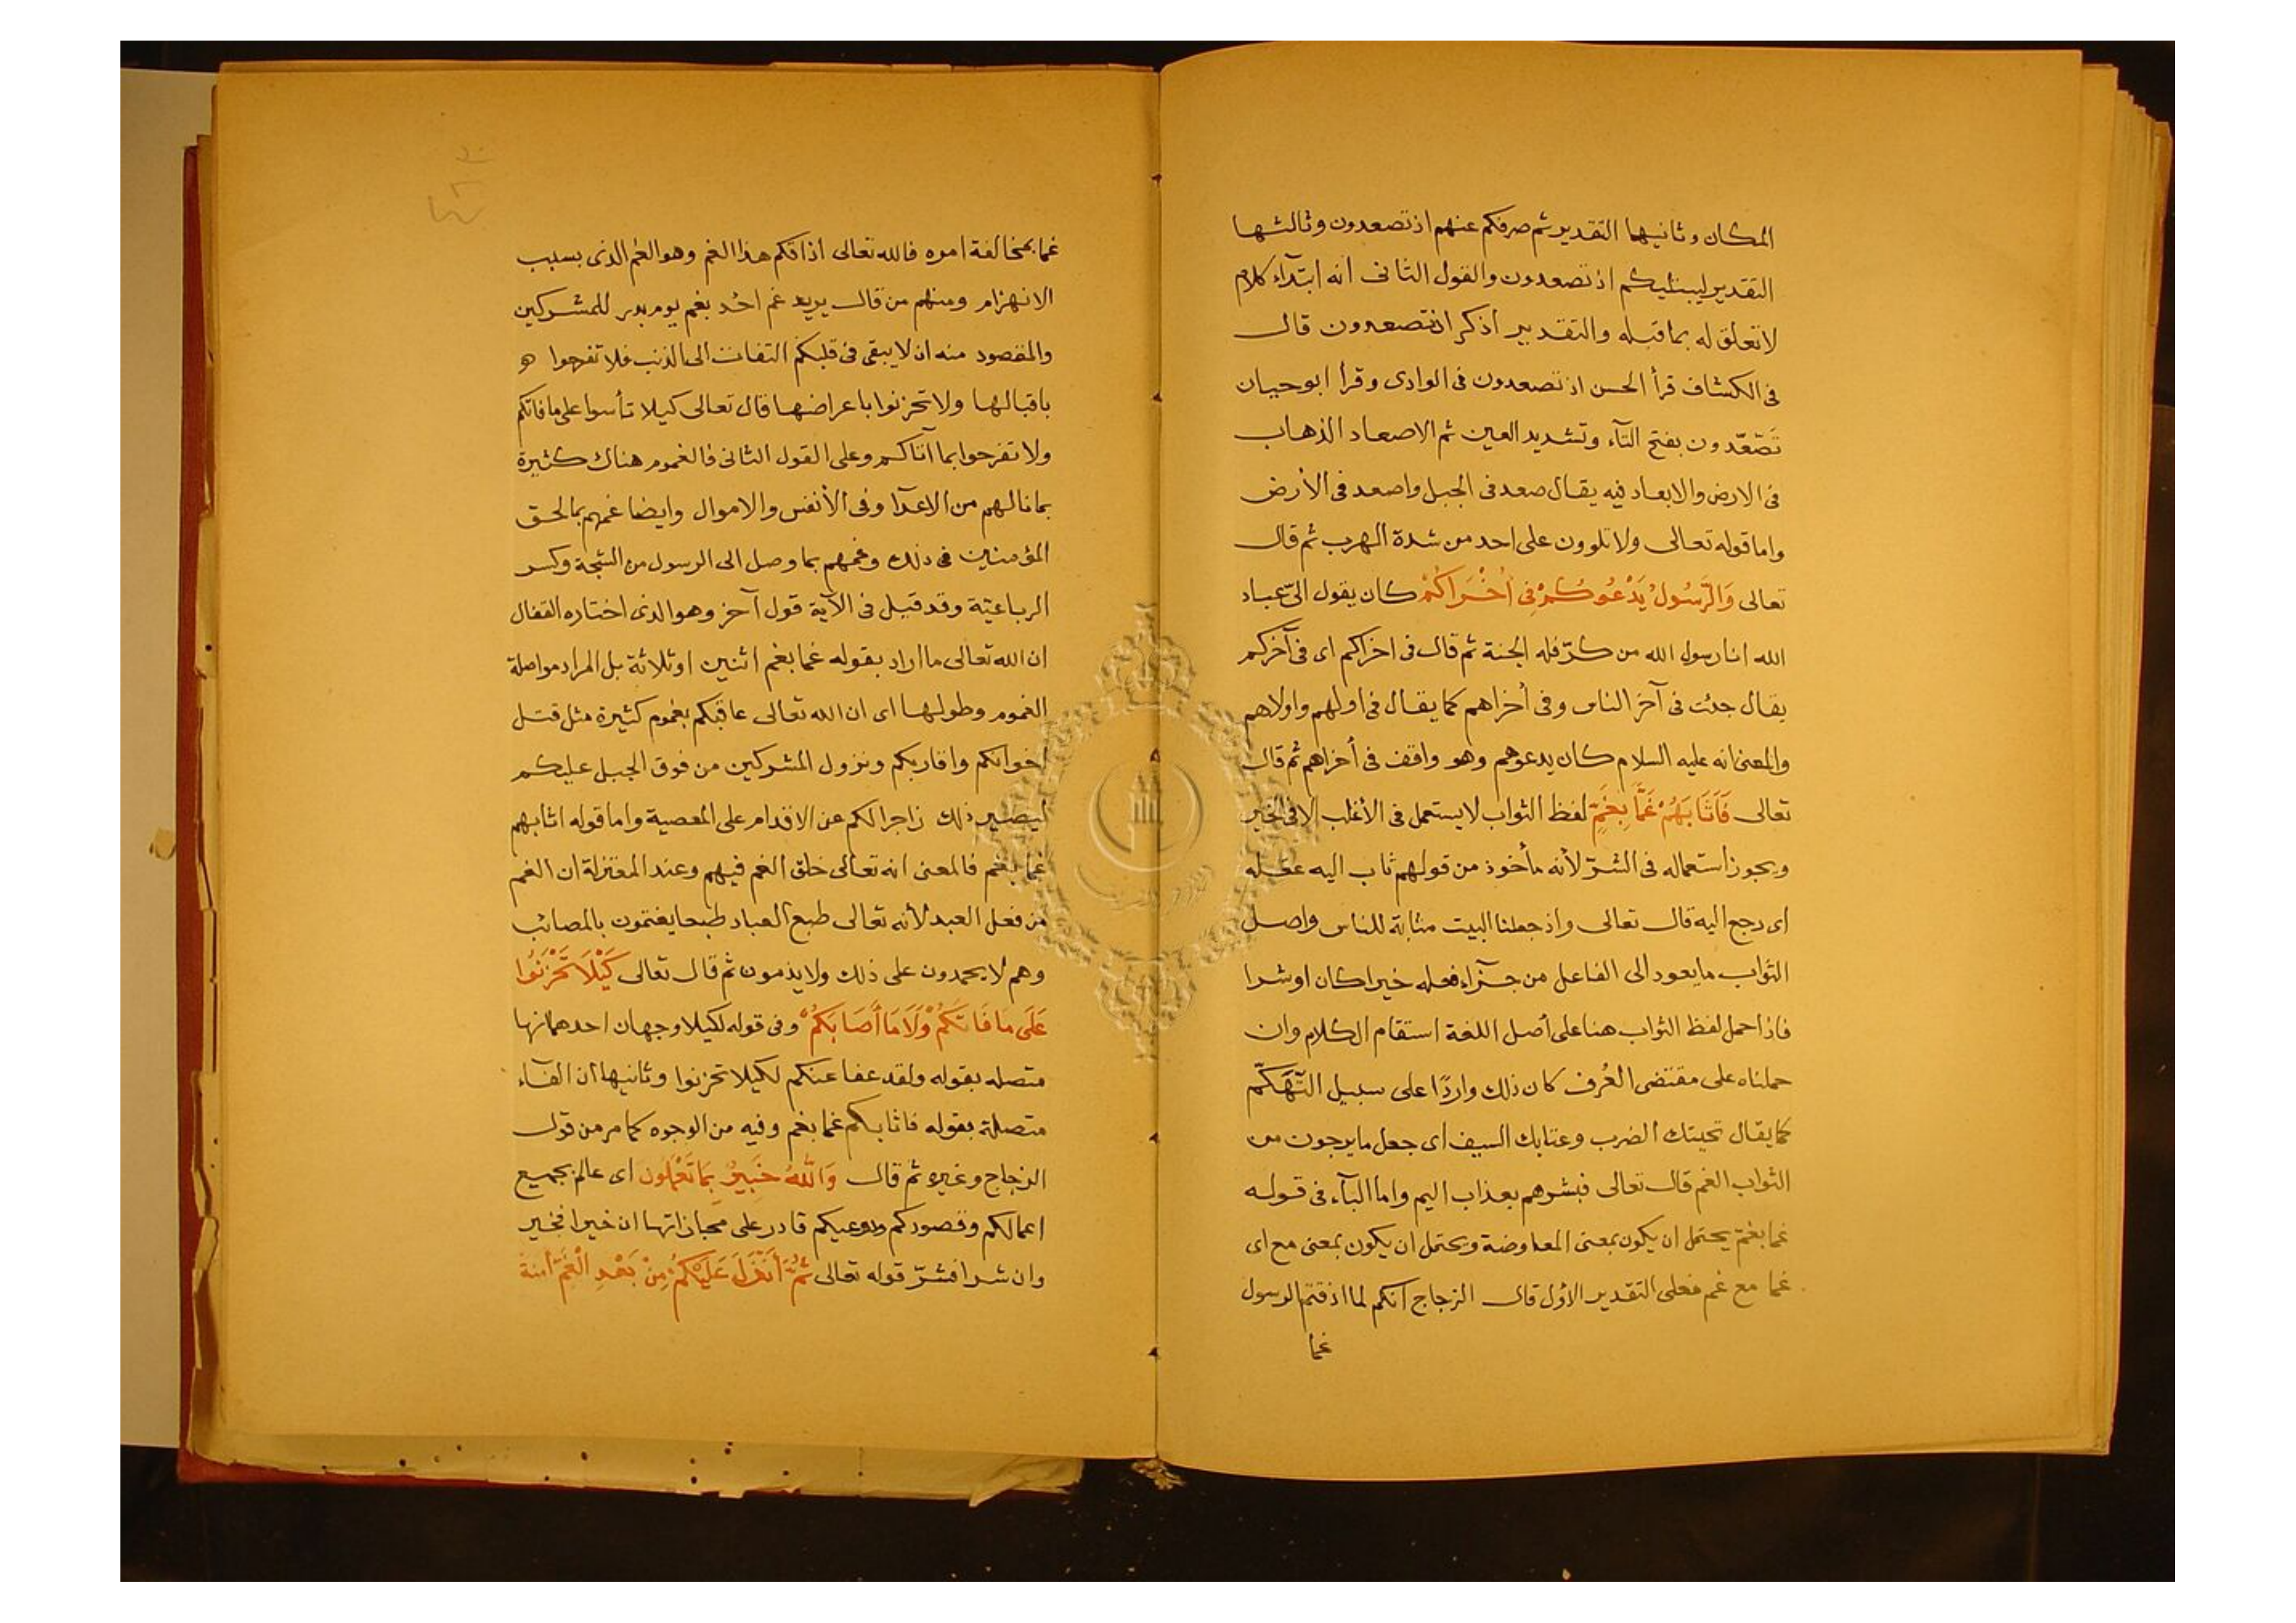 المكان وثانيها التقدير ثم صرفكم عنهم اذ تصعدون وثالثها
التقدير ليبتليكم اذ تصعدون والقول الثانى انه ابتدآء كلام
لا تعلق له بما قبله والتقدير اذكر اذ تصعدون قال
فى الكشاف قرأ الحسن اذ تصعدون فى الوادى وقرأ ابو حيان
تَصَّعّدون بفتح التآء وتشديد العين ثم الاصعاد الذهاب
فى الارض والابعاد فيه يقال صعد فى الجبل واصعد فى الأرض
واما قوله تعالى ولا تلوون على احد من شدة الهرب ثم قال
تعالى وَالرَّسُولُ يَدْعُوكُمْ فِى أُخْرَاكُمْ كان يقول الىّ عباد
الله انا رسول الله من كرّ فله الجنة ثم قال فى اخراكم اى فى آخركم
يقال جئت فى آخر الناس وفى أخراهم كما يقال فى اولهم واولاهم
والمعنى انه عليه السلام كان يدعوهم وهو واقف فى أخراهم ثم قال
تعالى فَاَثَابَهُمْ غَمًّا بِغَمٍّ لفظ الثواب لا يستعمل فى الأغلب الا فى الخير
ويجوز استعماله فى الشرّ لأنه مأخوذ من قولهم ثاب اليه عقله
اى رجع اليه قال تعالى واذ جعلنا البيت مثابة للناس واصل
الثواب ما يعود الى الفاعل من جزآء فعله خيرا كان او شرا
فاذا حمل لفظ الثواب هنا على أصل اللغة استقام الكلام وان
حملناه على مقتضى العُرف كان ذلك واردًا على سبيل التَّهَكّم
كما يقال تحيتك الضرب وعتابك السيف اى جعل ما يرجون من
الثواب الغم قال تعالى فبشرهم بعذاب اليم واما البآء فى قوله
غما بغمّ يحتمل ان يكون بمعنى المعاوضة ويحتمل ان يكون بمعنى مع اى
غما مع غم فعلى التقدير الأول قال الزجاج انكم لما اذقتم الرسول
غما
غما بمخالفة امره فالله تعالى اذاقكم هذا الغم وهو الغم الذى بسبب
الانهزام ومنهم من قال يريد غم احُد بغم يوم بدر للمشركين
والمقصود منه ان لا يبقى فى قلبكم التفات الى الذنب فلا تفرحوا
باقبالها ولا تحزنوا باعراضها قال تعالى كيلا تأسوا على ما فاتكم
ولا تفرحوا بما آتاكم وعلى القول الثانى فالغموم هناك كثيرة
بما نالهم من الاعدآ وفى الأنفس والاموال وايضا غمهم بما لحق
المؤمنين فى ذلك وغمهم بما وصل الى الرسول من الشجة وكسر
الرباعيّة وقد قيل فى الآية قول آخر وهو الذى اختاره القفال
ان الله تعالى ما اراد بقوله غما بغم اثنين او ثلاثة بل المراد مواصلة
الغموم وطولها اى ان الله تعالى عاقبكم بغموم كثيرة مثل قتل
اخوانكم واقاربكم ونزول المشركين من فوق الجبل عليكم
ليصير ذلك زاجرا لكم عن الاقدام على المعصية واما قوله اثابهم
غما بغم فالمعنى انه تعالى خلق الغم فيهم وعند المعتزلة ان الغم
من فعل العبد لأنه تعالى طبع العباد طبعا يغتمون بالمصائب
وهم لا يحمدون على ذلك ولا يذمون ثم قال تعالى كَيْلَا تَحْزَنُوا
عَلَى مَا فَاتَكُمْ وَلَا مَا أَصَابَكُمْ وفى قوله لكيلا وجهان احدهما انها
متصله بقوله ولقد عفا عنكم لكيلا تحزنوا وثانيها ان الفآء
متصلة بقوله فاثابكم غما بغم وفيه من الوجوه كما مر من قول
الزجاج وغيره ثم قال وَاللّٰهُ خَبِيرٌ بِمَا تَعْمَلُونَ اى عالم بجميع
اعمالكم وقصودكم ودوعيكم قادر على مجازاتها ان خيرا فخير
وان شرا فشرّ قوله تعالى ثُمَّ أَنْزَلَ عَلَيْكُمْ مِنْ بَعْدِ الْغَمِّ أمنة